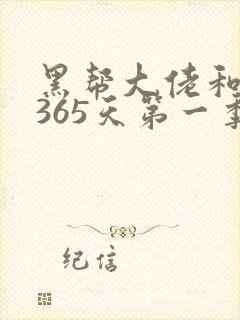 黑帮大佬和
365天第一季
纪信